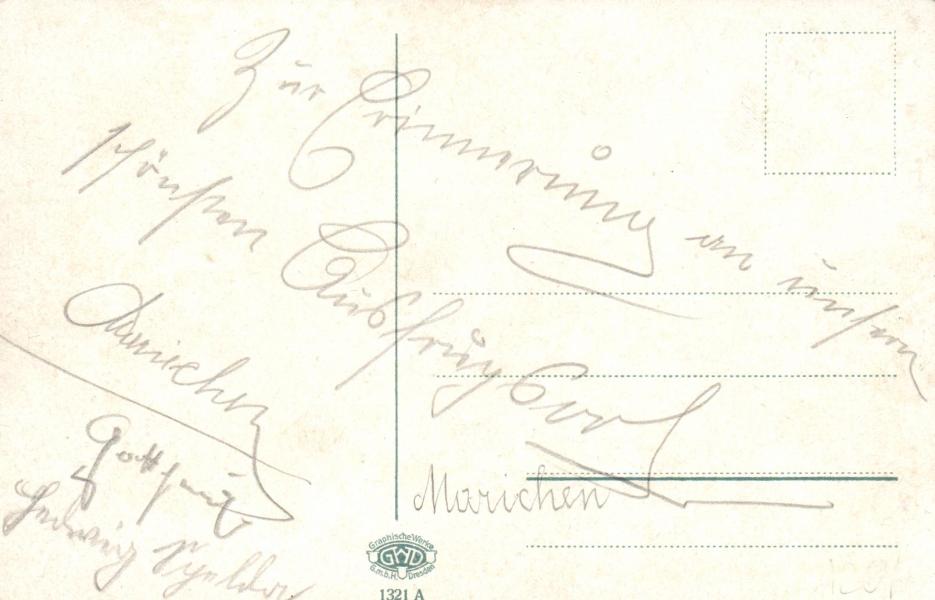 Zur Erinnerung an unsern
schönsten Ausflugsort
Marichen
Hedwig
Marichen
Graphische Werke
GWD
G.m.b.H. Dresden
1321 A